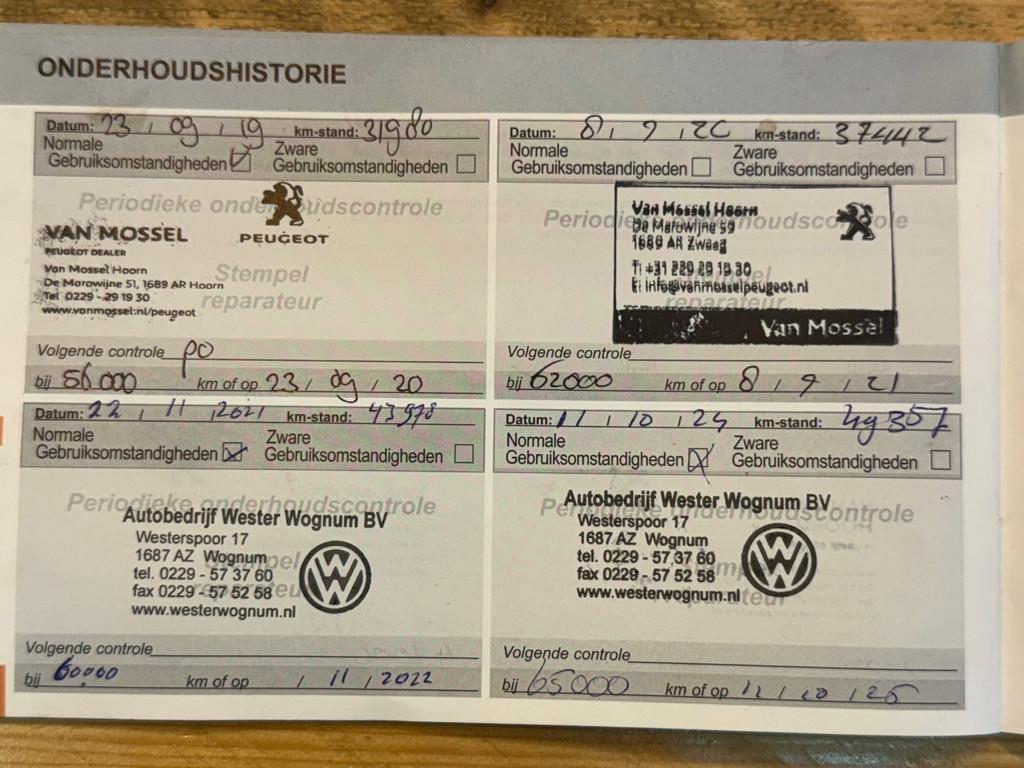 ONDERHOUDSHISTORIE
Datum: 23 / 09 / 19 km-stand: 31980
Normale Zware
Gebruiksomstandigheden Gebruiksomstandigheden
Periodieke onderhoudscontrole
VAN MOSSEL
PEUGEOT DEALER
PEUGEOT
Van Mossel Hoorn
De Marowijne 51, 1689 AR Hoorn
Tel 0229 - 29 19 30
www.vanmossel.nl/peugeot
Stempel
reparateur
Volgende controle PO
bij 56000 km of op 23 / 09 / 20
Datum: 8 / 9 / 20 km-stand: 37442
Normale Zware
Gebruiksomstandigheden Gebruiksomstandigheden
Periodieke onderhoudscontrole
Van Mossel Hoorn
De Marowijne 59
1689 AR Zwaag
T: +31 229 29 19 30
E: info@vanmosselpeugeot.nl
Stempel
reparateur
Van Mossel
Volgende controle
bij 62000 km of op 8 / 9 / 21
Datum: 22 / 11 / 2021 km-stand: 43978
Normale Zware
Gebruiksomstandigheden Gebruiksomstandigheden
Periodieke onderhoudscontrole
Autobedrijf Wester Wognum BV
Westerspoor 17
1687 AZ Wognum
tel. 0229 - 57 37 60
fax 0229 - 57 52 58
www.westerwognum.nl
Stempel
reparateur
Volgende controle
bij 60000 km of op / 11 / 2022
Datum: 11 / 10 / 24 km-stand: 49357
Normale Zware
Gebruiksomstandigheden Gebruiksomstandigheden
Periodieke onderhoudscontrole
Autobedrijf Wester Wognum BV
Westerspoor 17
1687 AZ Wognum
tel. 0229 - 57 37 60
fax 0229 - 57 52 58
www.westerwognum.nl
Stempel
reparateur
Volgende controle
bij 65000 km of op 11 / 10 / 25